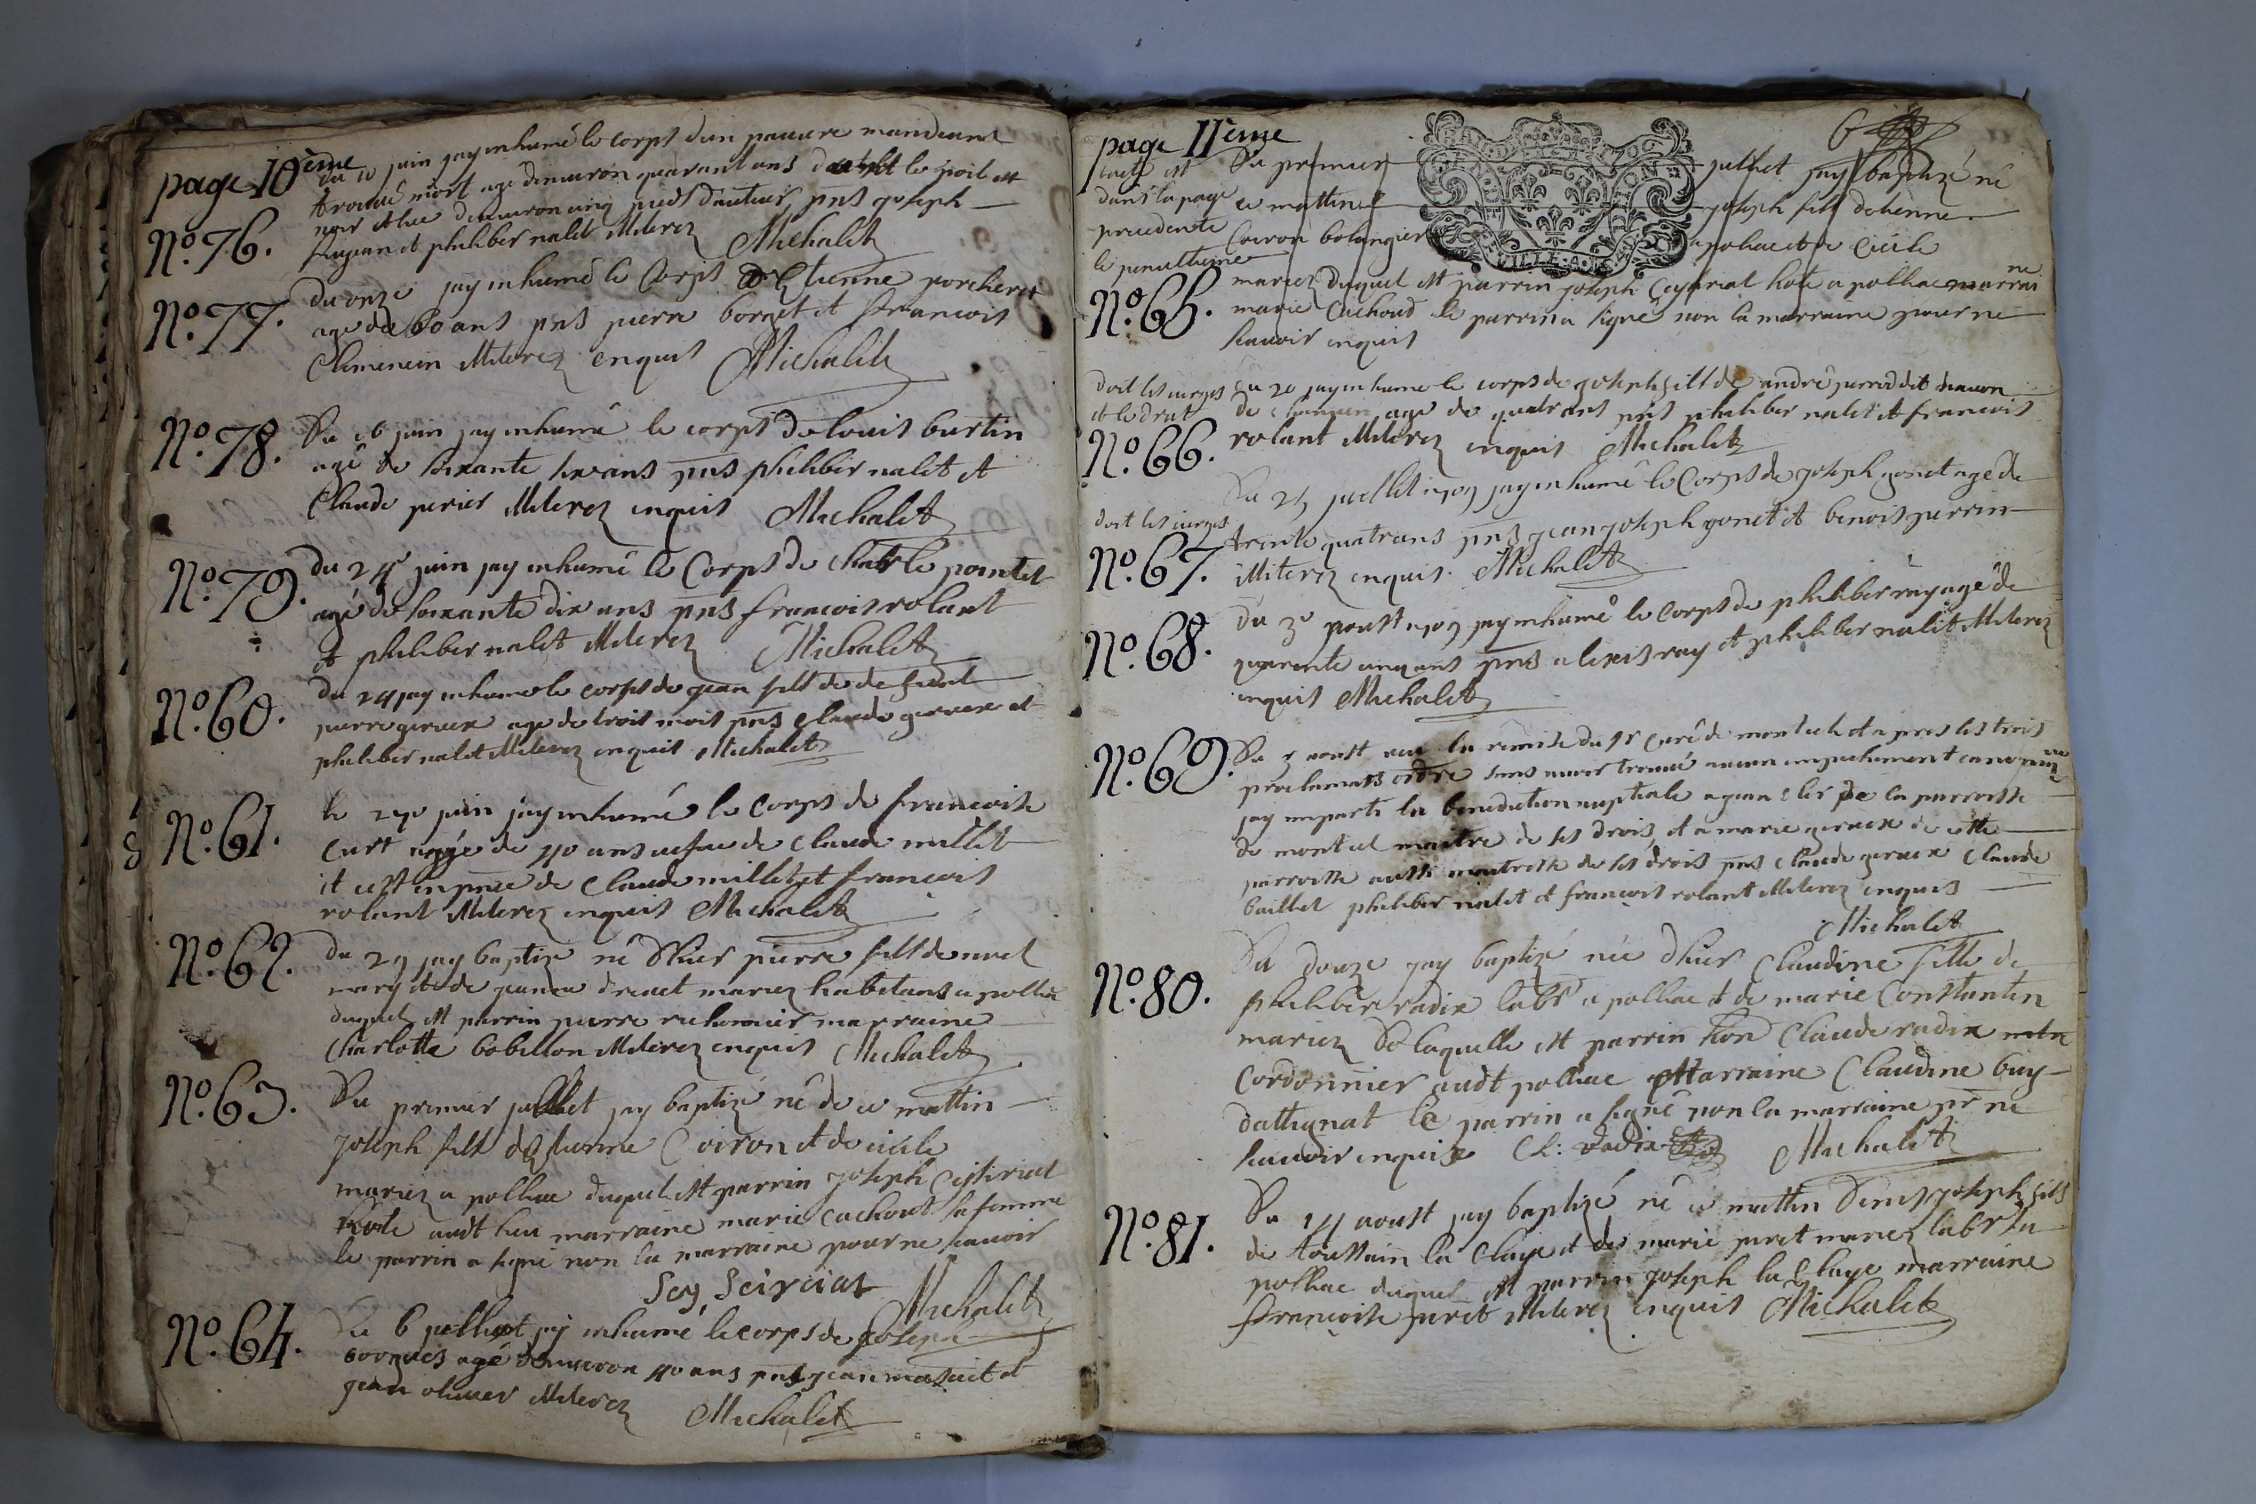 page 10ème
du 10 juin jay inhumé le corps dun pauvre mandiant
trouvé mort agé denviron quarant ans le poil et
noir et lieu denviron cinq pieds d'auteur pns joseph
et philiber nalet illiterez Michalet
No. 76.
No. 77.
du onze jay inhumé le corps de Etienne porcherer
age de 60 ans pns pierre borget et francois
Clemencin illiterez enquis Michalet
No. 78.
Du 16 juin jay inhumé le corps de louis burtin
agé de soixante six ans pns philiber nalet et
Claude perier illiterez enquis Michalet
No. 79.
du 24e juin jay inhumé le Corps de charle pointet
agé de soixante dix ans pns francois rolant
et philiber nalet illiterez Michalet
No. 60.
Du 24 jay inhumé le corps de jean fils de defunt
pierre gervex age de trois mois pns claude gervex et
philiber nalet illiterez enquis Michalet
No. 61.
le 27e juin jay inhumé le corps de francoise
Curt agée de 40 ans vefve de claude millet
et cest en pnce de claude millet et francois
rolant illiterez enquis Michalet
No. 62.
du 29 jay baptizé né d'hier pierre fils de
mary et de jeanne mariez habitans a polliac
duquel est parrin pierre marraine
Charlotte bobillon illiterez enquis Michalet
No. 63.
Du premier juillet jay baptizé né de ce mattin
joseph fils detienne Coiron et de cicile
mariez a polliac duquel est parrin joseph
hote audt lieu marraine marie cachout sa femme
le parrin a signé non la marraine pour ne scavoir
Michalet
No. 64.
Du 6 juillet jay inhumé le corps de joseph
agé denviron 40 ans pns jean et
jean olivier illiterez Michalet
page 11ème
6
Du premier juillet jay baptizé né
cest est
dans la page
precedente
le penultieme
ce mattin joseph fils detienne
Coiron bolangier a poliac et de Cicile
mariez duquel est parrin joseph hote a polliac marrai
ne
No. 65.
marie Cachoud le parrin a signé non la marraine pour ne
scavoir enquis
doit les cierges
et le drat
du 20 jay inhumé le corps de joseph fils de andré perrod dit
de age de quatre ans pns philiber nalet et francois
No. 66.
rolant illiterez enquis Michalet
Du 25 juillet 1709 jay inhumé le Corps de joseph gonet agé de
doit les cierges
trente quatre ans pns jean joseph gonet et benois perrin
No. 67.
illiterez enquis. Michalet
No. 68.
du 3e aoust 1709 jay inhumé le corps de philiber ray agé de
quarente cinq ans pns alexis ray et philiber nalet illiterez
enquis Michalet
No. 69.
Du aoust veu la remise du sr curé de montuel et apres les trois
proclamats sans avoir trouvé aucun empechement canonique
jay imparti la benediction nuptiale a jean de la parroisse
de montuel maitre de ses drois, et a marie gervex de cette
parroisse aussi maitresse de ses drois pns claude gervex claude
baillet philiber nalet et francois rolant illiterez enquis
Michalet
No. 80.
Du douze jay baptizé née d'hier Claudine fille de
philiber radix labr a polliac et de marie Constantin
mariez de laquelle est parrin hon Claude radix
Cordonnier audt polliac et marraine Claudine buy
dattignat le parrin a signé non la marraine pr ne
scavoir enquise Cl: radix Michalet
No. 81.
Du 14 aoust jay baptizé né ce mattin denis joseph fils
de toussain la claye et de marie puret mariez labrs a
polliac duquel est parrin joseph la Claye marraine
francoise puret illiterez enquis Michalet